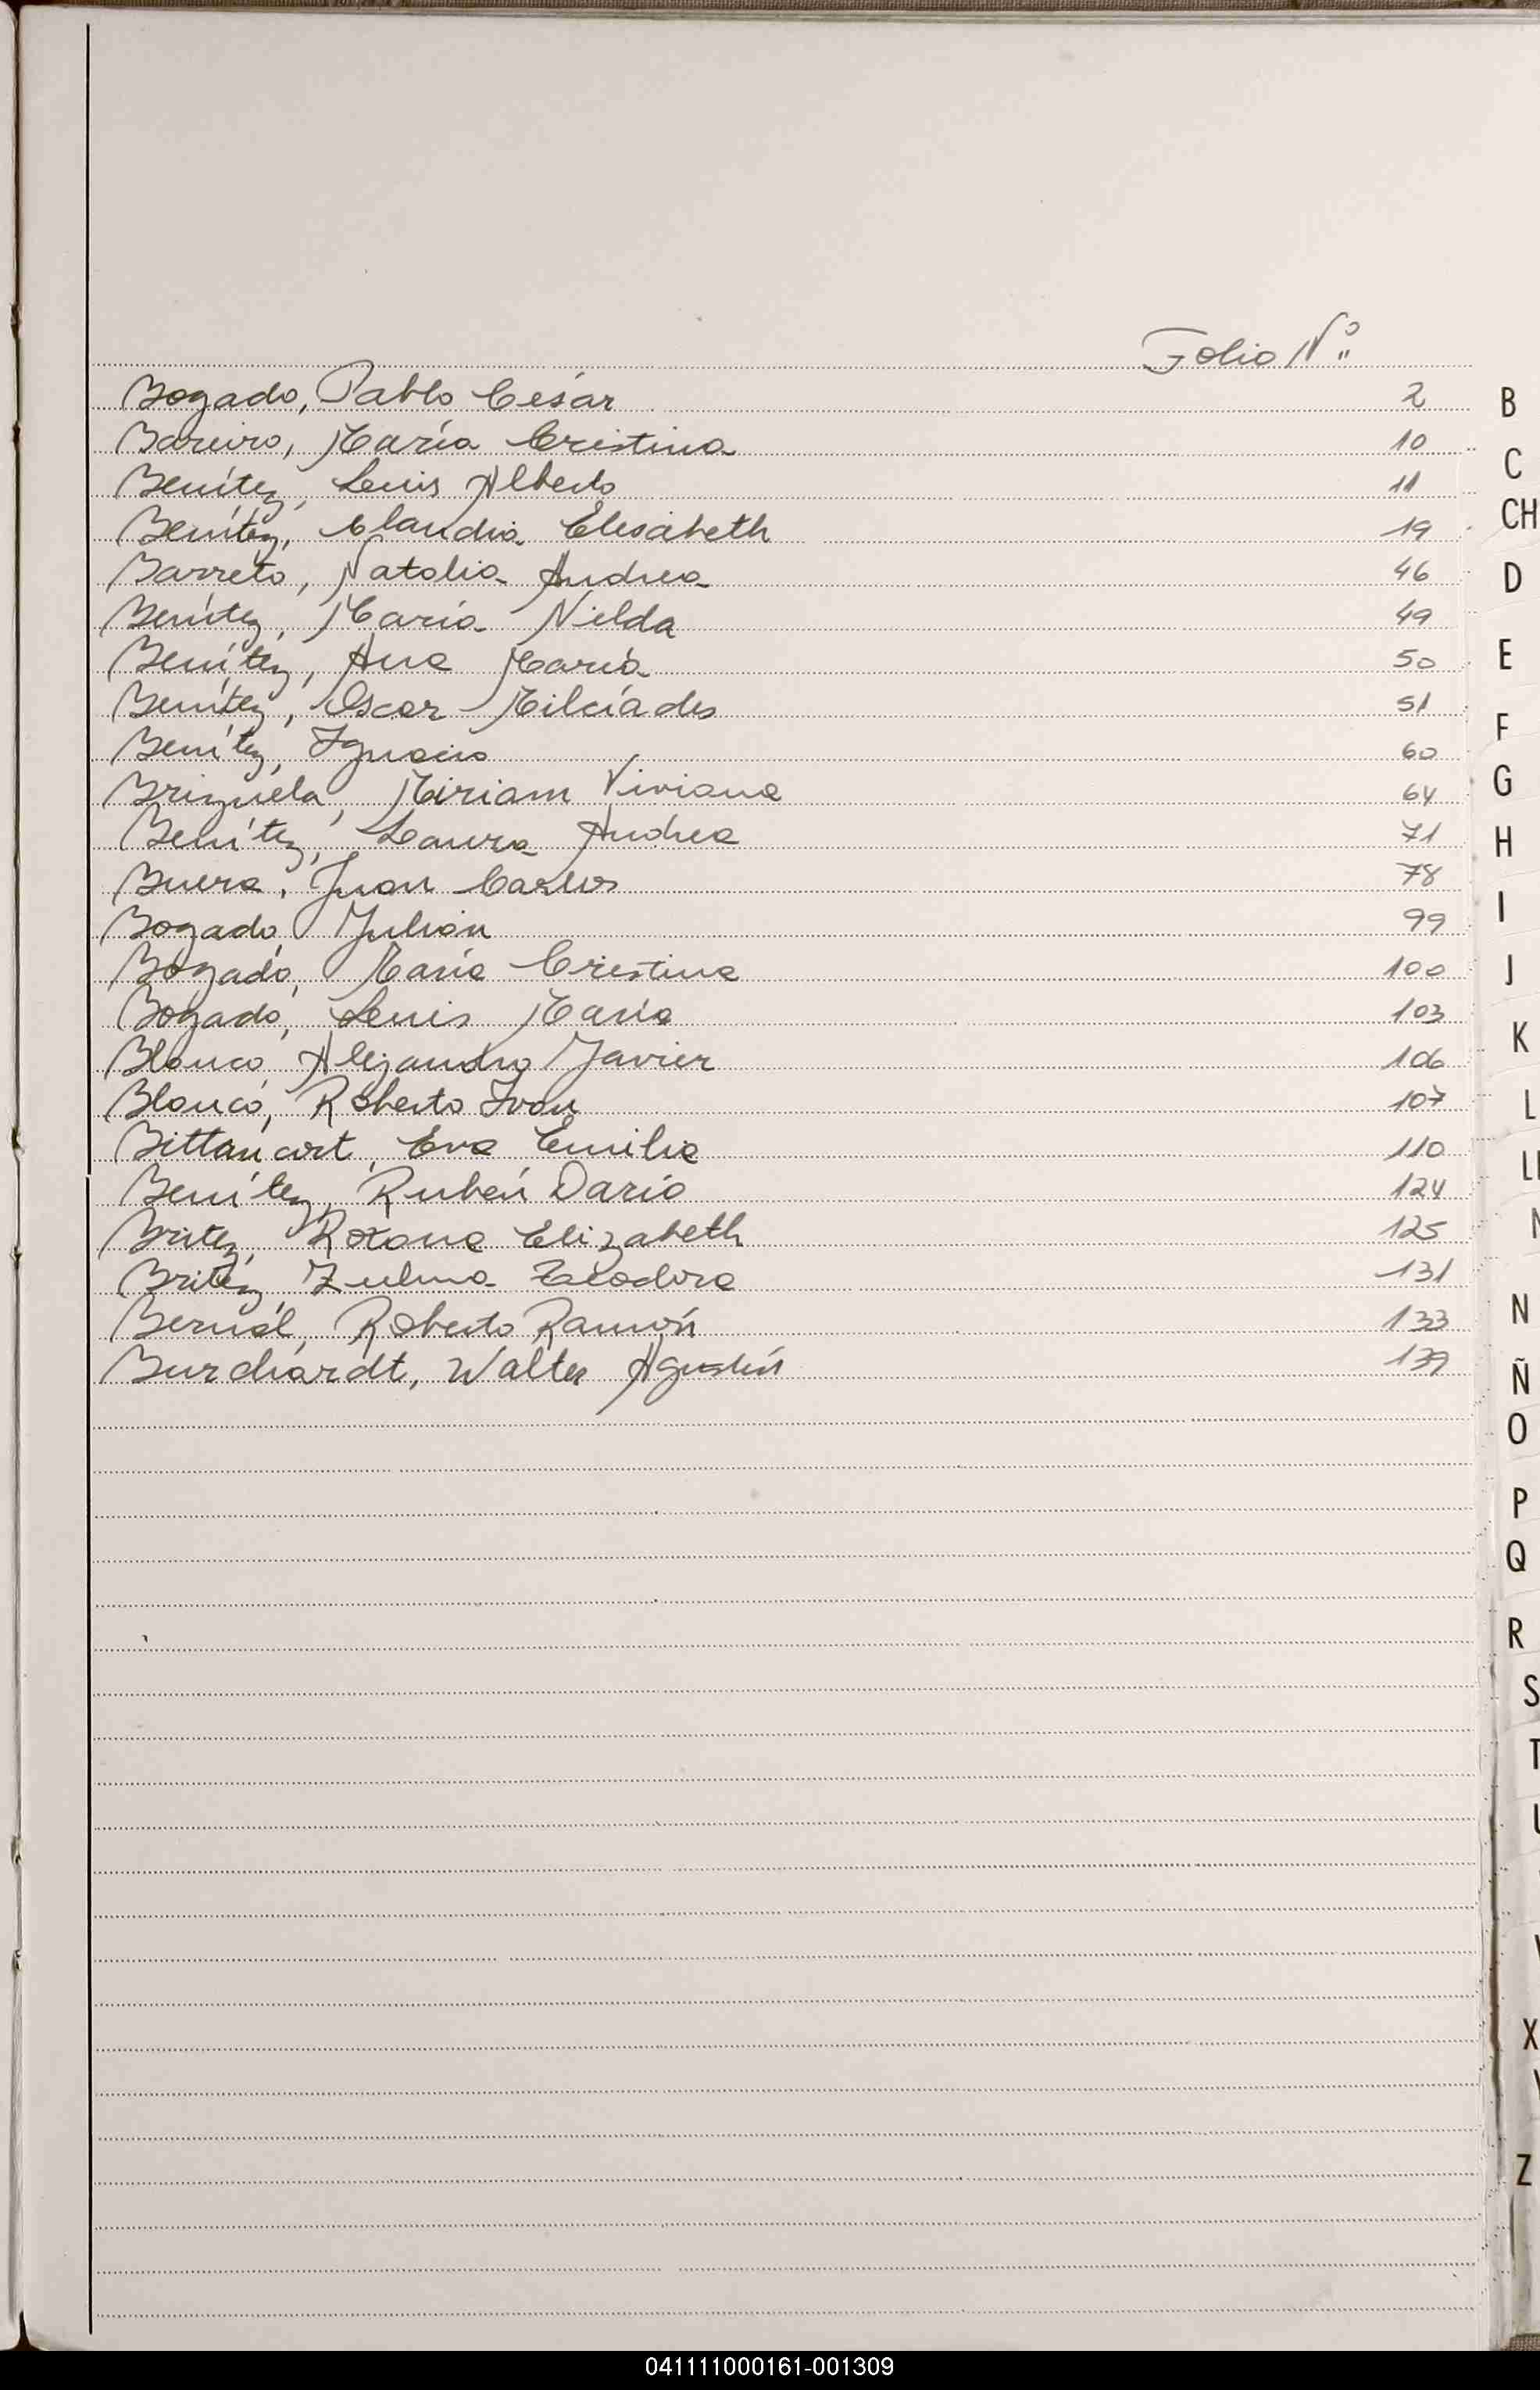 Folio Nº
Bogado, Pablo César 2
Bareiro, María Cristina 10
Benítez, Luis Alberto 11
Benítez, Claudia Elisabeth 19
Barreto, Natalia Andrea 46
Benítez, María Nilda 49
Benítez, Ana María 50
Benítez, Oscar Milcíades 51
Benítez, Ignacio 60
Brizuela, Miriam Viviana 64
Benítez, Laura Andrea 71
Buera, Juan Carlos 78
Bogado, Julián 99
Bogado, María Cristina 100
Bogado, Luis María 103
Blanco, Alejandro Javier 106
Blanco, Roberto Iván 107
Bittancort, Eva Emilia 110
Benítez, Rubén Darío 124
Britez, Roxana Elizabeth 125
Britez, Zulma 131
Bernal, Roberto Ramón 133
Burchardt, Walter Agustín 139
B
C
CH
D
E
F
G
H
I
J
K
L
N
Ñ
O
P
Q
R
S
T
X
Z
041111000161-001309